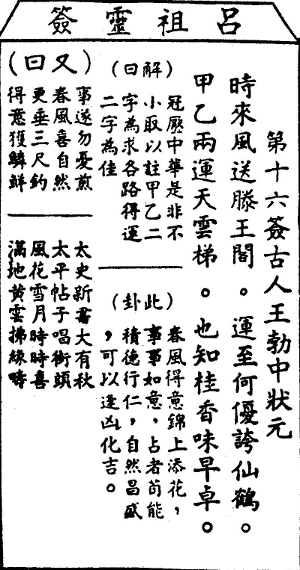 呂祖靈簽
第十六簽古人王勃中狀元
時來風送滕王閣。運至何優誇仙鶴。
甲乙兩運天雲梯。也知桂香味早卓。
(解曰)
冠壓中華是非不
小取以註甲乙二
字為求各路得運
二字為佳
(此卦)
春風得意錦上添花，
事事如意，占者苟能
積德行仁，自然昌盛
，可以逢凶化吉。
(又曰)
事遂勿憂煎
春風喜自然
更垂三尺釣
得意獲鱗鮮
太史新書大有秋
太平帖子唱街頭
風花雪月時時喜
滿地黃雲拂綠疇